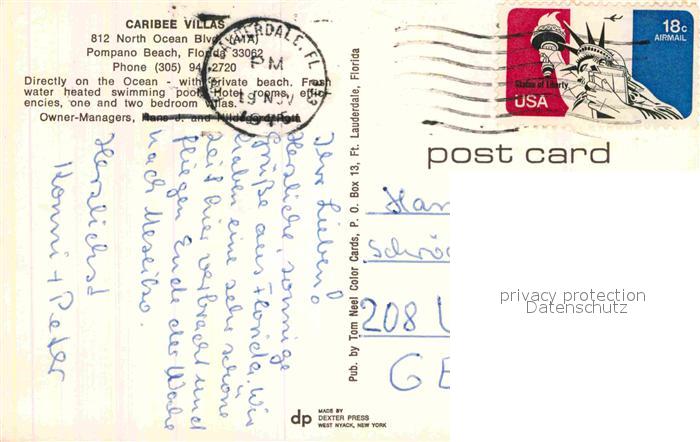 CARIBEE VILLAS
812 North Ocean Blvd. (A1A)
Pompano Beach, Florida 33062
Phone (305) 941-2720
Directly on the Ocean - with private beach. Fresh
water heated swimming pool. Hotel rooms, effici-
encies, one and two bedroom villas.
Owner-Managers, Hans J. and Hildegard
LAUDERDALE, FL
PM
19 NOV
333
18c
AIRMAIL
Statue of Liberty
USA
post card
Ihr Lieben!
Herzliche, sonnige
Grüße aus Florida. Wir
haben eine sehr schöne
Zeit hier verbracht und
fliegen Ende der Woche
nach Mexiko.
Herzlichst
Konni + Peter
Pub. by Tom Neel Color Cards, P. O. Box 13, Ft. Lauderdale, Florida
Han
Schrö
208
GE
privacy protection
Datenschutz
dp
MADE BY
DEXTER PRESS
WEST NYACK, NEW YORK